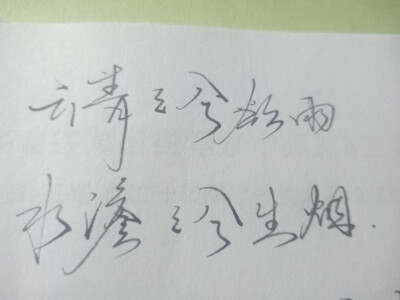 云青〻兮欲雨
水澹〻兮生烟.